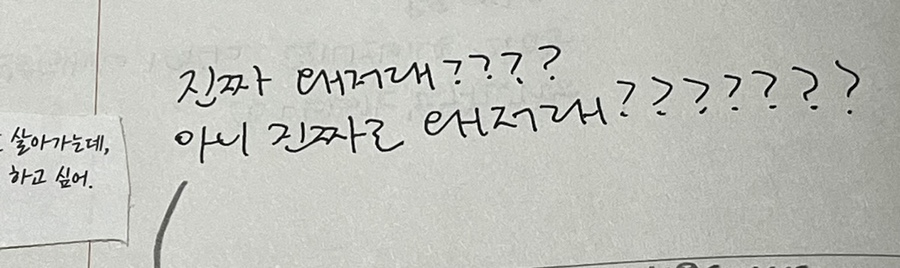 진짜 왜저래????
아니 진짜로 왜저래???????
살아가는데,
하고 싶어.